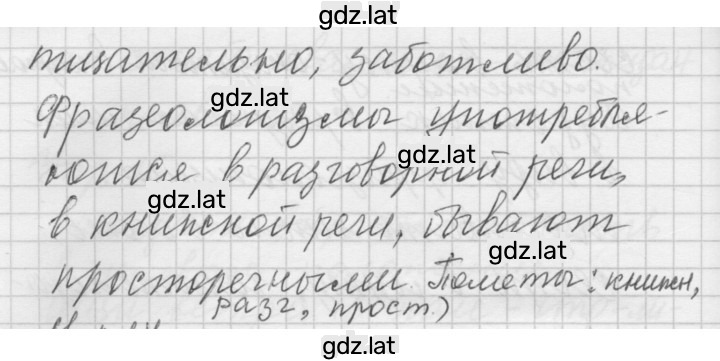 gdz.lat
тщательно, заботливо.
gdz.lat
Фразеологизмы употребля-
gdz.lat
ются в разговорной речи,
gdz.lat
в книжной речи, бывают
gdz.lat
просторечными. Пометы: книжн,
разг, прост.)
gdz.lat